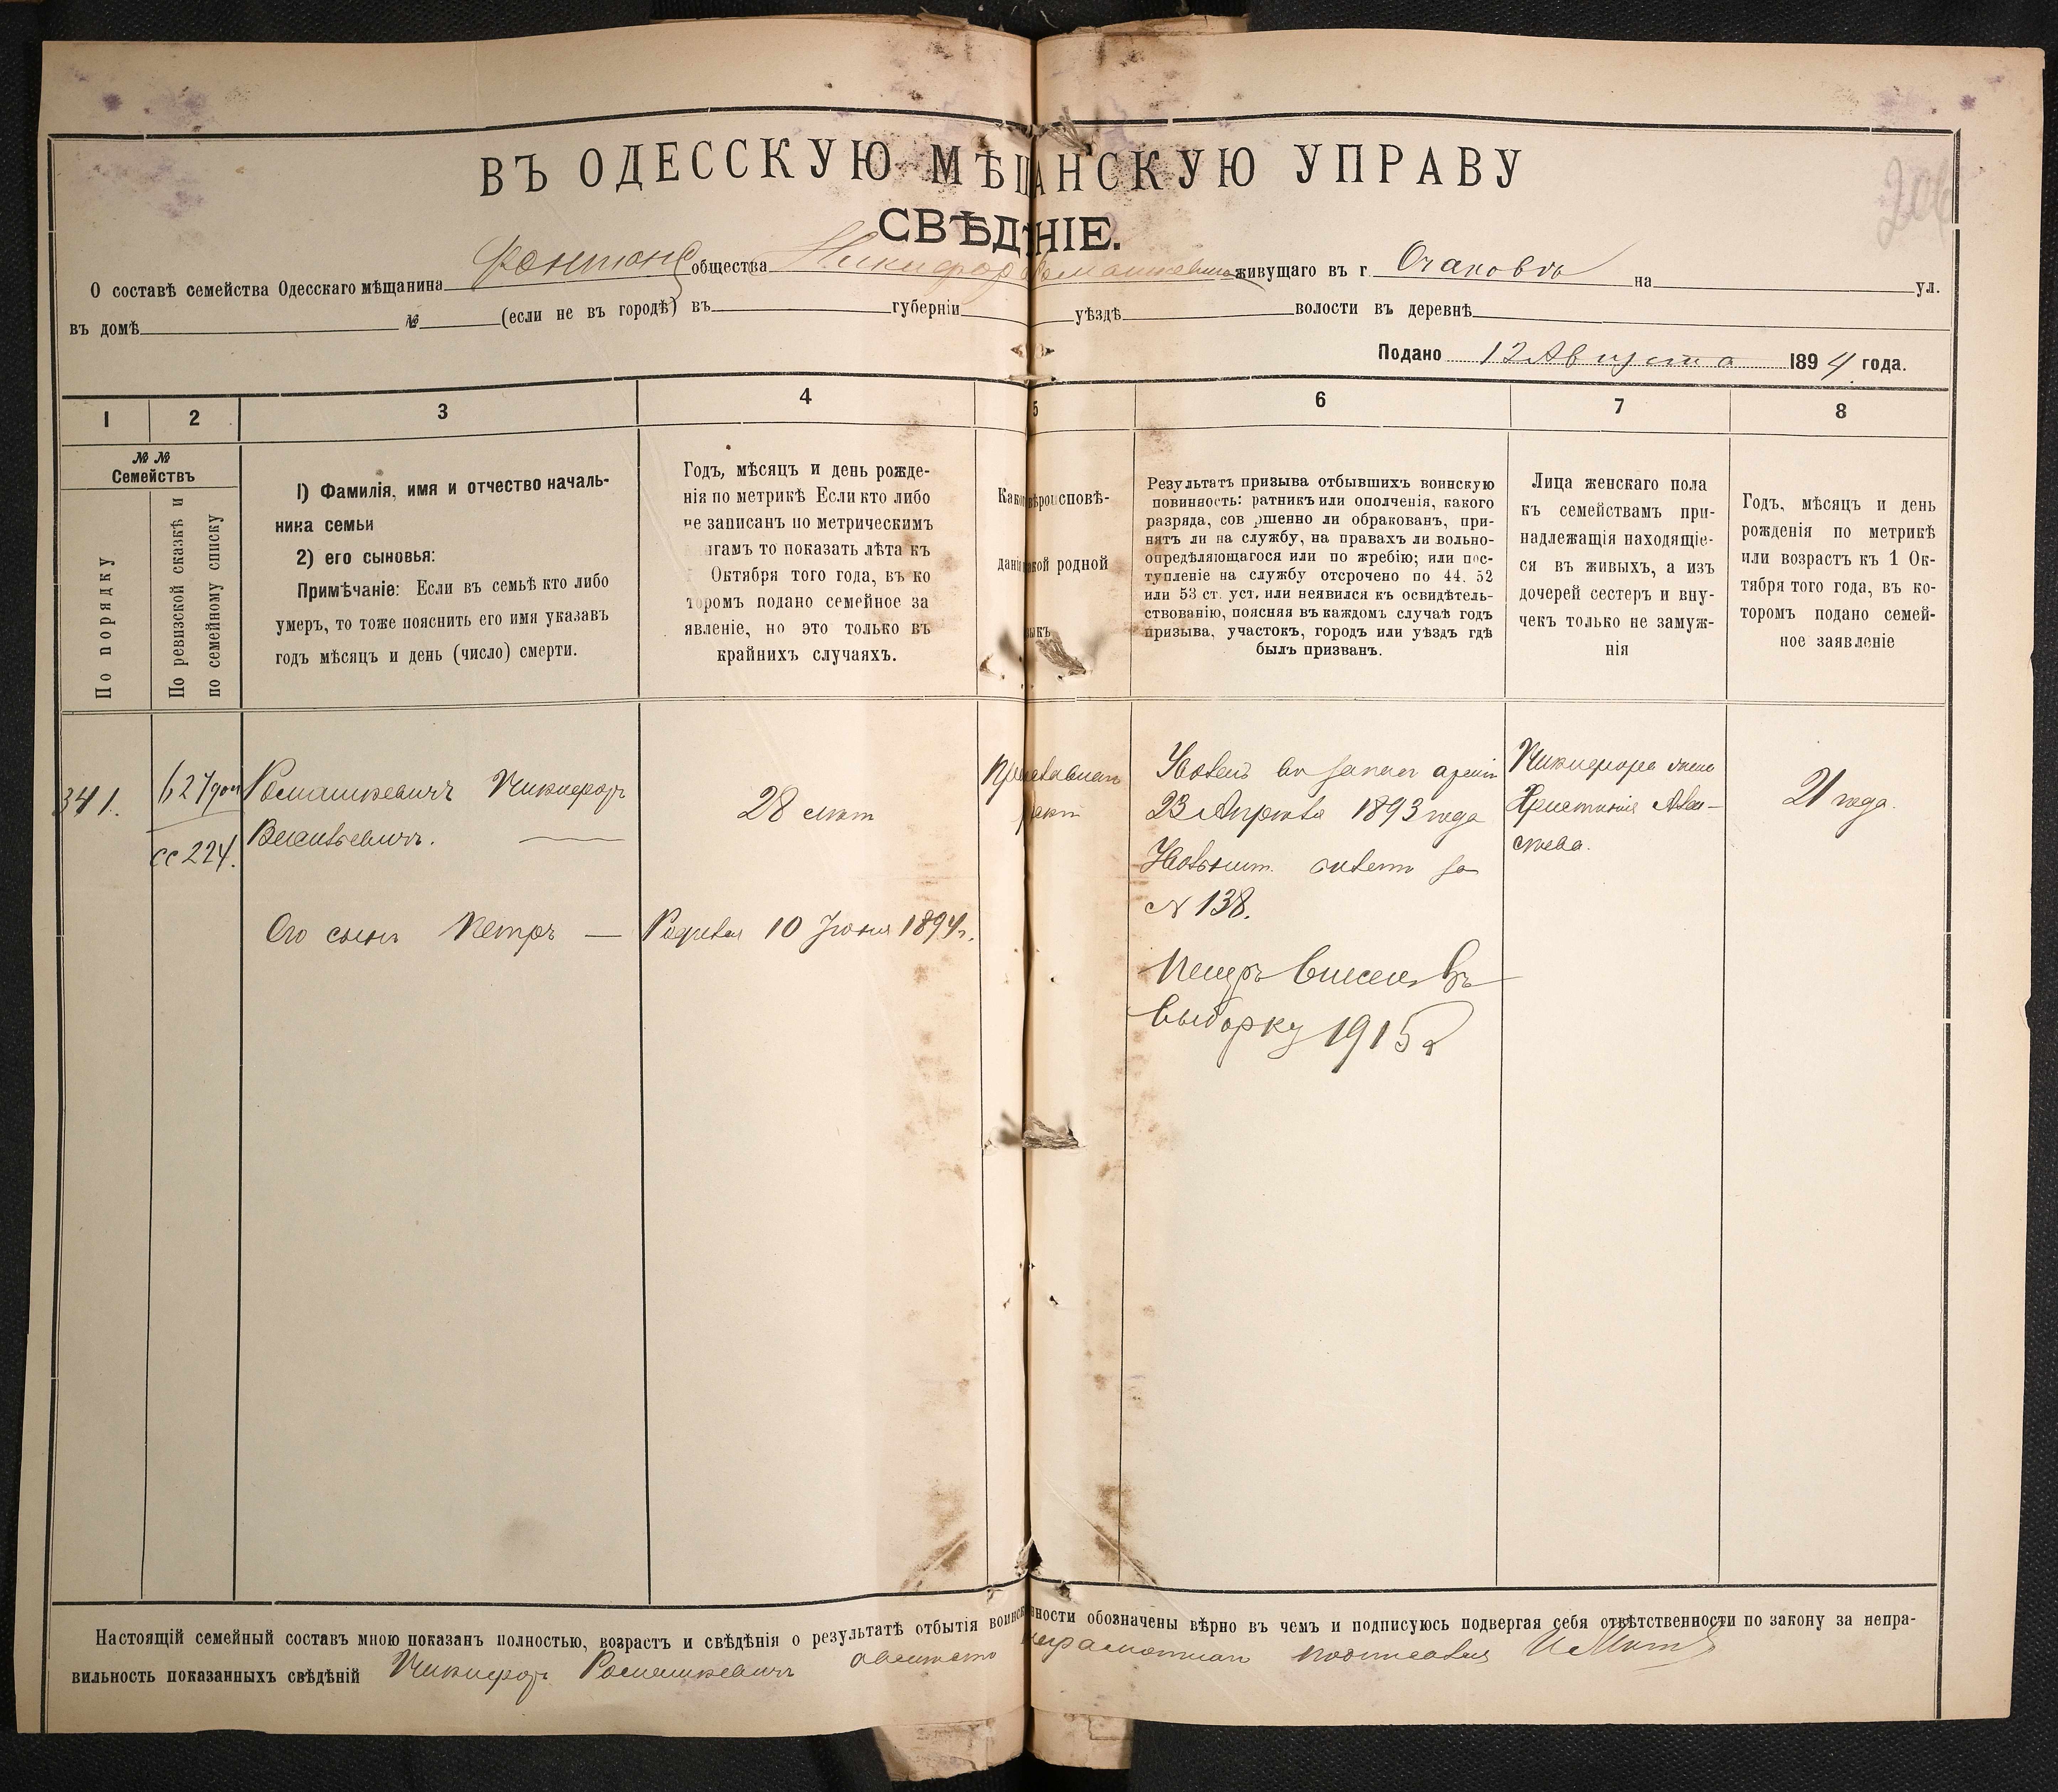 206
ВЪ ОДЕССКУЮ МѢЩАНСКУЮ УПРАВУ
СВѢДѢНІЕ.
О составѣ семейства Одесскаго мѣщанина Фонтанс общества Никифор Ромашкевич живущаго въ г. Очаковѣ на ул.
въ домѣ № (если не въ городѣ) въ губерніи уѣздѣ волости въ деревнѣ
Подано 12 Августа 1894 года.
1 2 3 4 5 6 7 8
№ № Семействъ
По порядку
По ревизской сказкѣ и по семейному списку
1) Фамилія, имя и отчество началь-
ника семьи
2) его сыновья:
Примѣчаніе: Если въ семьѣ кто либо
умеръ, то тоже пояснить его имя указавъ
годъ мѣсяцъ и день (число) смерти.
Годъ, мѣсяцъ и день рожде-
нія по метрикѣ Если кто либо
не записанъ по метрическимъ
игамъ то показать лѣта къ
Октября того года, въ ко
торомъ подано семейное за
явленіе, но это только въ
крайнихъ случаяхъ.
Како вѣроисповѣ-
дані кой родной
зыкъ
Результатъ призыва отбывшихъ воинскую
повинность: ратникъ или ополченія, какого
разряда, сов ршенно ли обракованъ, при-
нятъ ли на службу, на правахъ ли вольно-
опредѣляющагося или по жребію; или пос-
тупленіе на службу отсрочено по 44. 52
или 53 ст. уст. или неявился къ освидѣтель-
ствованію, поясняя въ каждомъ случаѣ годъ
призыва, участокъ, городъ или уѣздъ гдѣ
былъ призванъ.
Лица женскаго пола
къ семействамъ при-
надлежащія находящіе-
ся въ живыхъ, а изъ
дочерей сестеръ и вну-
чекъ только не замуж-
нія
Годъ, мѣсяцъ и день
рожденія по метрикѣ
или возрастъ къ 1 Ок-
тября того года, въ ко-
торомъ подано семей-
ное заявленіе
341.
627 доп
сс 224.
Ромашкевичъ Никифоръ
Васильевичъ.
28 лѣтъ
Православн
Уволенъ въ запасъ арміи
23 Апрѣля 1893 года
Увольнит. билетъ за
№ 138.
Никифора жена
Христинія Алек-
сѣева.
21 года.
Его сынъ Петръ — Родился 10 Іюня 1894 г.
Петръ внесенъ въ
выборку 1915 г
Настоящій семейный составъ мною показанъ полностью, возрастъ и свѣдѣнія о результатѣ отбытія воинск нности обозначены вѣрно въ чемъ и подписуюсь подвергая себя отвѣтственности по закону за непра-
вильность показанныхъ свѣдѣній Никифоръ Ромашкевичъ неграмотн